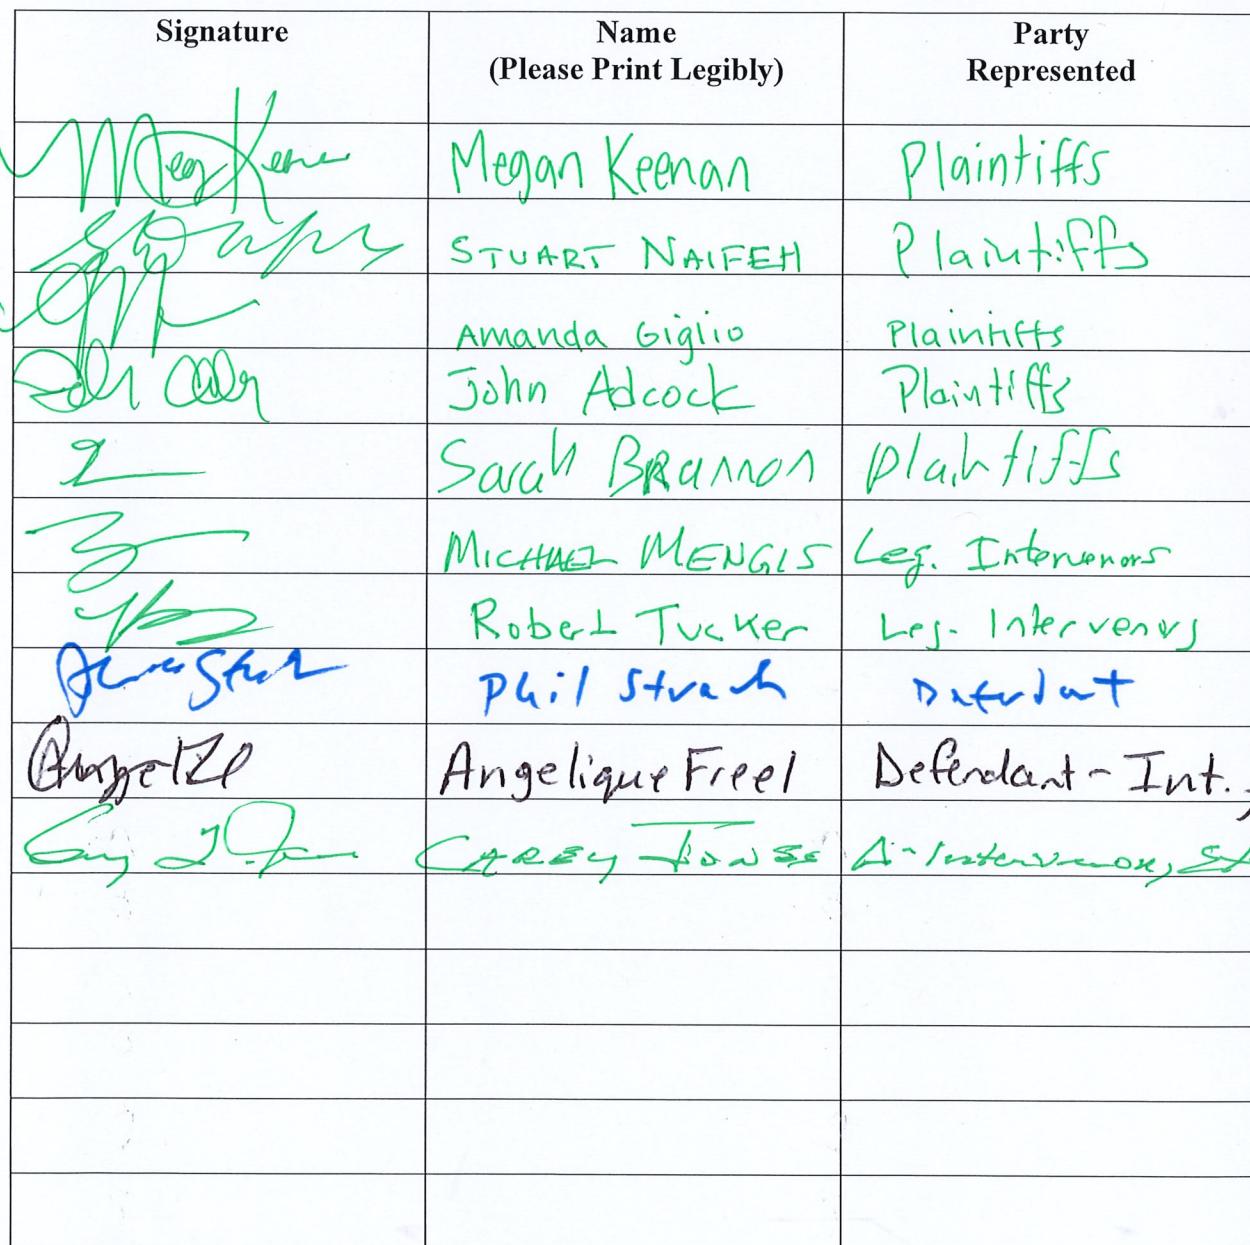 Signature Name Party
(Please Print Legibly) Represented
Meg Keenan Megan Keenan Plaintiffs
STUART NAIFEH Plaintiffs
Amanda Giglio Plaintiffs
John Adcock Plaintiffs
Sarah Brannon Plaintiffs
MICHAEL MENGIS Leg. Intervenors
Robert Tucker Leg. Intervenors
Phil Strach Defendant
Angelique Freel Defendant-Int.,
CAREY JONES Δ-Intervenor,